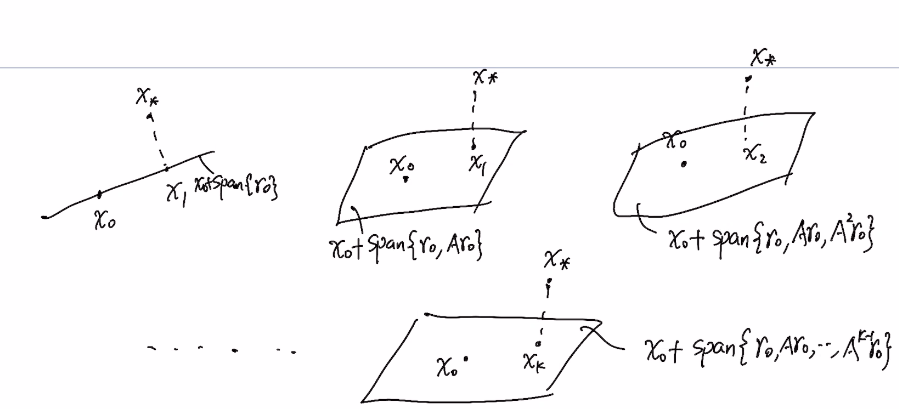 x* x₁ x₀+span{r₀} x₀
x* x₀ x₁ x₀+span{r₀, Ar₀}
x* x₀ x₂ x₀+ span{r₀, Ar₀, A²r₀}
.....
x* x₀ xₖ x₀+ span{r₀, Ar₀, .., Aᴷ⁻¹r₀}